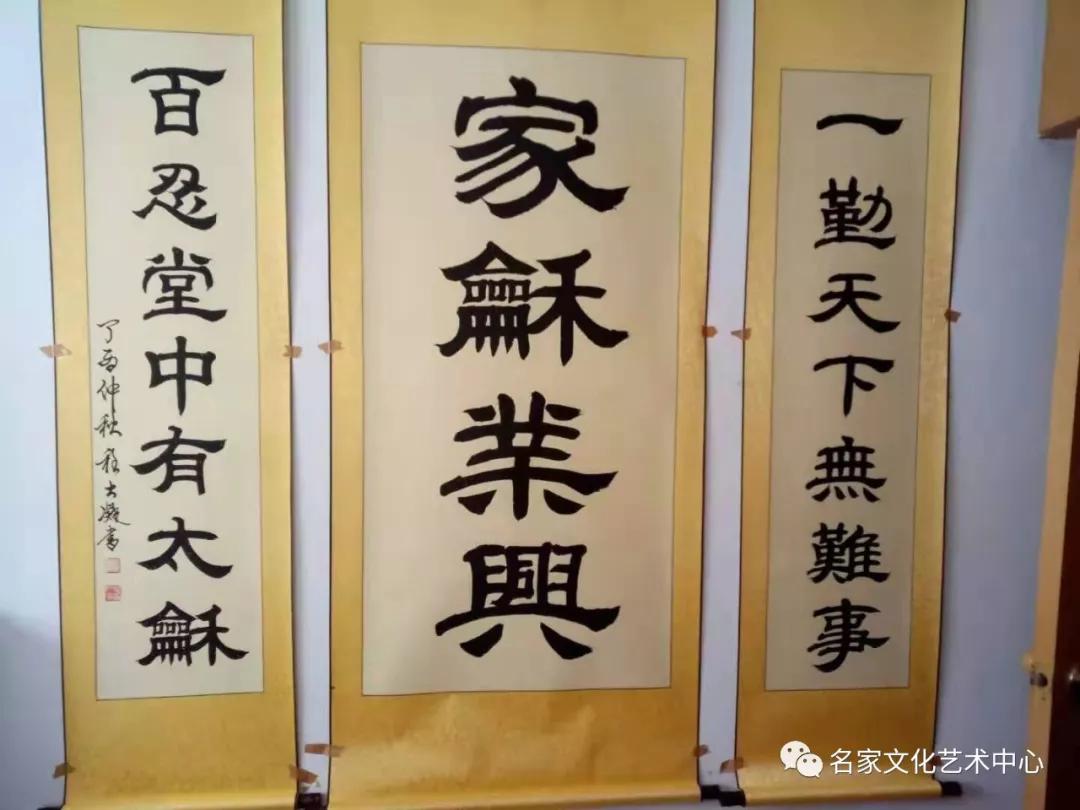 一勤天下無難事
家龢業興
百忍堂中有太龢
丁酉仲秋 書
名家文化艺术中心